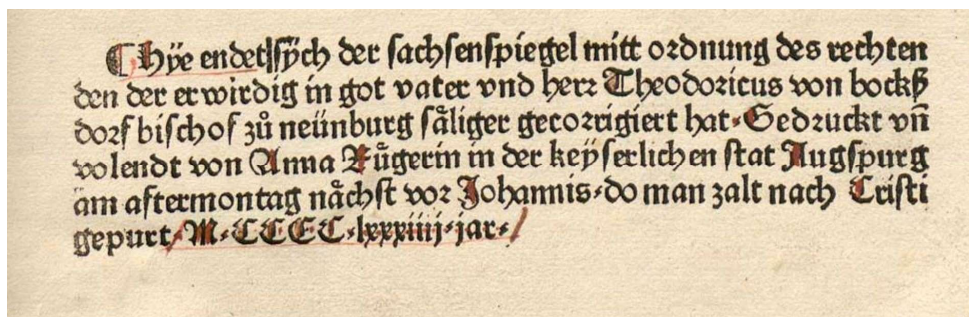 ¶ Hÿe endet sÿch der sachsenspiegel mitt ordnung des rechten
den der erwirdig in got vater vnd herr Theodoricus von bockß
dorf bischof zů neünburg såliger gecorrigiert hat. Gedruckt vn̄
volendt von Anna Růgerin in der keÿserlichen stat Augspurg
am aftermontag nåchst vor Johannis. do man zalt nach Cristi
gepurt. M. CCCC. lxxxiiij. jar.